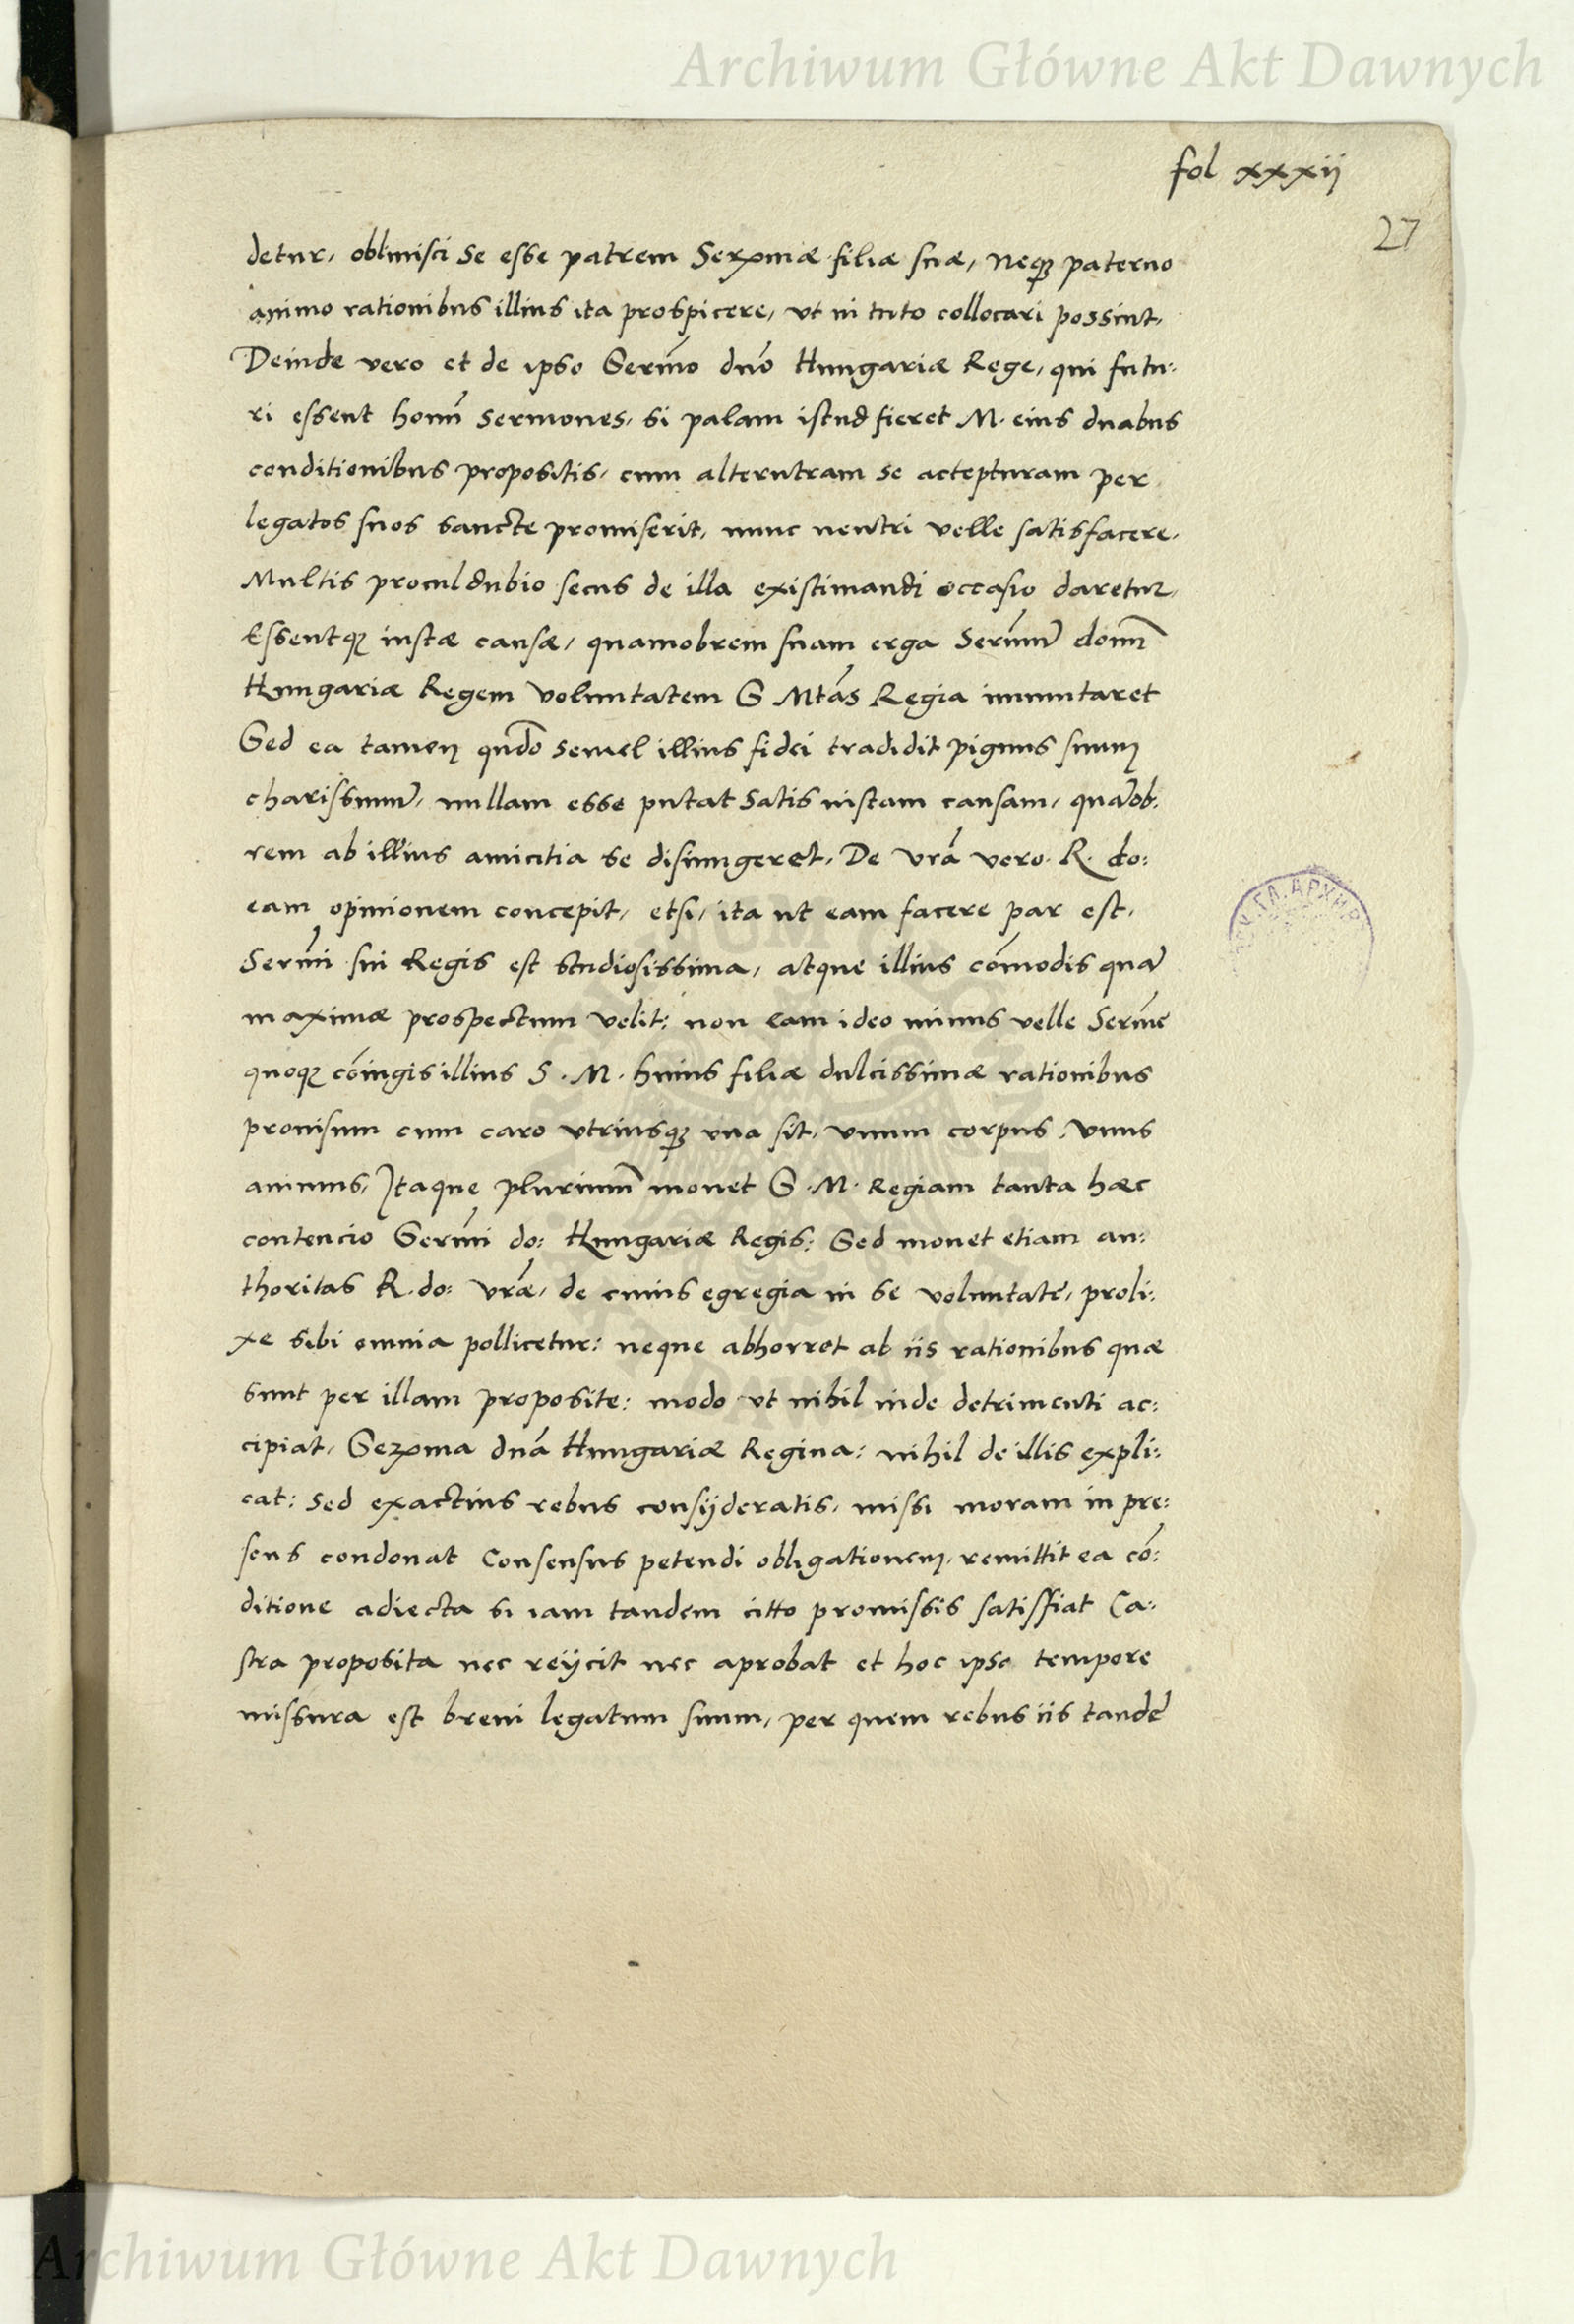 Archiwum Główne Akt Dawnych
fol xxxij
27
detur, obliuisci se esse patrem Serx̄mæ filiæ suæ, neqꝫ paterno
animo rationibus illius ita prospicere, vt in tuto collocari possint,
Deinde vero et de ipso Serm̄o dn̄o Hungariæ Rege, qui futu:
ri essent homī sermones, si palam istud fieret M. eius duabus
conditionibus propositis, cum alterutram se accepturam per
legatos suos sancte promiserit, nunc neutri velle satisfacere.
Multis proculdubio secus de illa existimandi occasio daretur,
Essentqꝫ iustæ causæ, quamobrem suam erga Serm̄ū dom̄
Hungariæ Regem voluntatem S Mtās Regia immutaret
Sed ea tamen qn̄do semel illius fidei tradidit pignus suum
charissimū, nullam esse putat satis iustam causam, quāob:
rem ab illius amicitia se disiungeret, De vrā vero. R. do:
eam opinionem concepit, etsi, ita ut eam facere par est,
Serm̄i sui Regis est studiosissima, atque illius cōmodis quā
maximæ prospectum velit: non eam ideo minus velle Serm̄e
quoqꝫ cōiugis illius S. M. huius filiæ dulcissimæ rationibus
prouisum cum caro vtriusqꝫ vna sit, vnum corpus, vnus
animus, Itaque plurimū mouet S. M. Regiam tanta hæc
contencio Serm̄i do: Hungariæ Regis: Sed mouet etiam au:
thoritas R. do: vrǣ, de cuius egregia in se voluntatē, proli:
xe sibi omnia pollicetur: neque abhorret ab iis rationibus quæ
sunt per illam proposite: modo vt nihil inde detrimenti ac:
cipiat, Serx̄ma dn̄a Hungariæ Regina: nihil de illis expli:
cat: sed exactius rebus consijderatis, missi moram in pre:
sens condonat Consensus petendi obligationem, remittit ea cō:
ditione adiecta si iam tandem citto promissis satisffiat Ca:
stra proposita nec reijcit nec aprobat et hoc ipso tempore
missura est breui legatum suum, per quem rebus iis tandē
Archiwum Główne Akt Dawnych